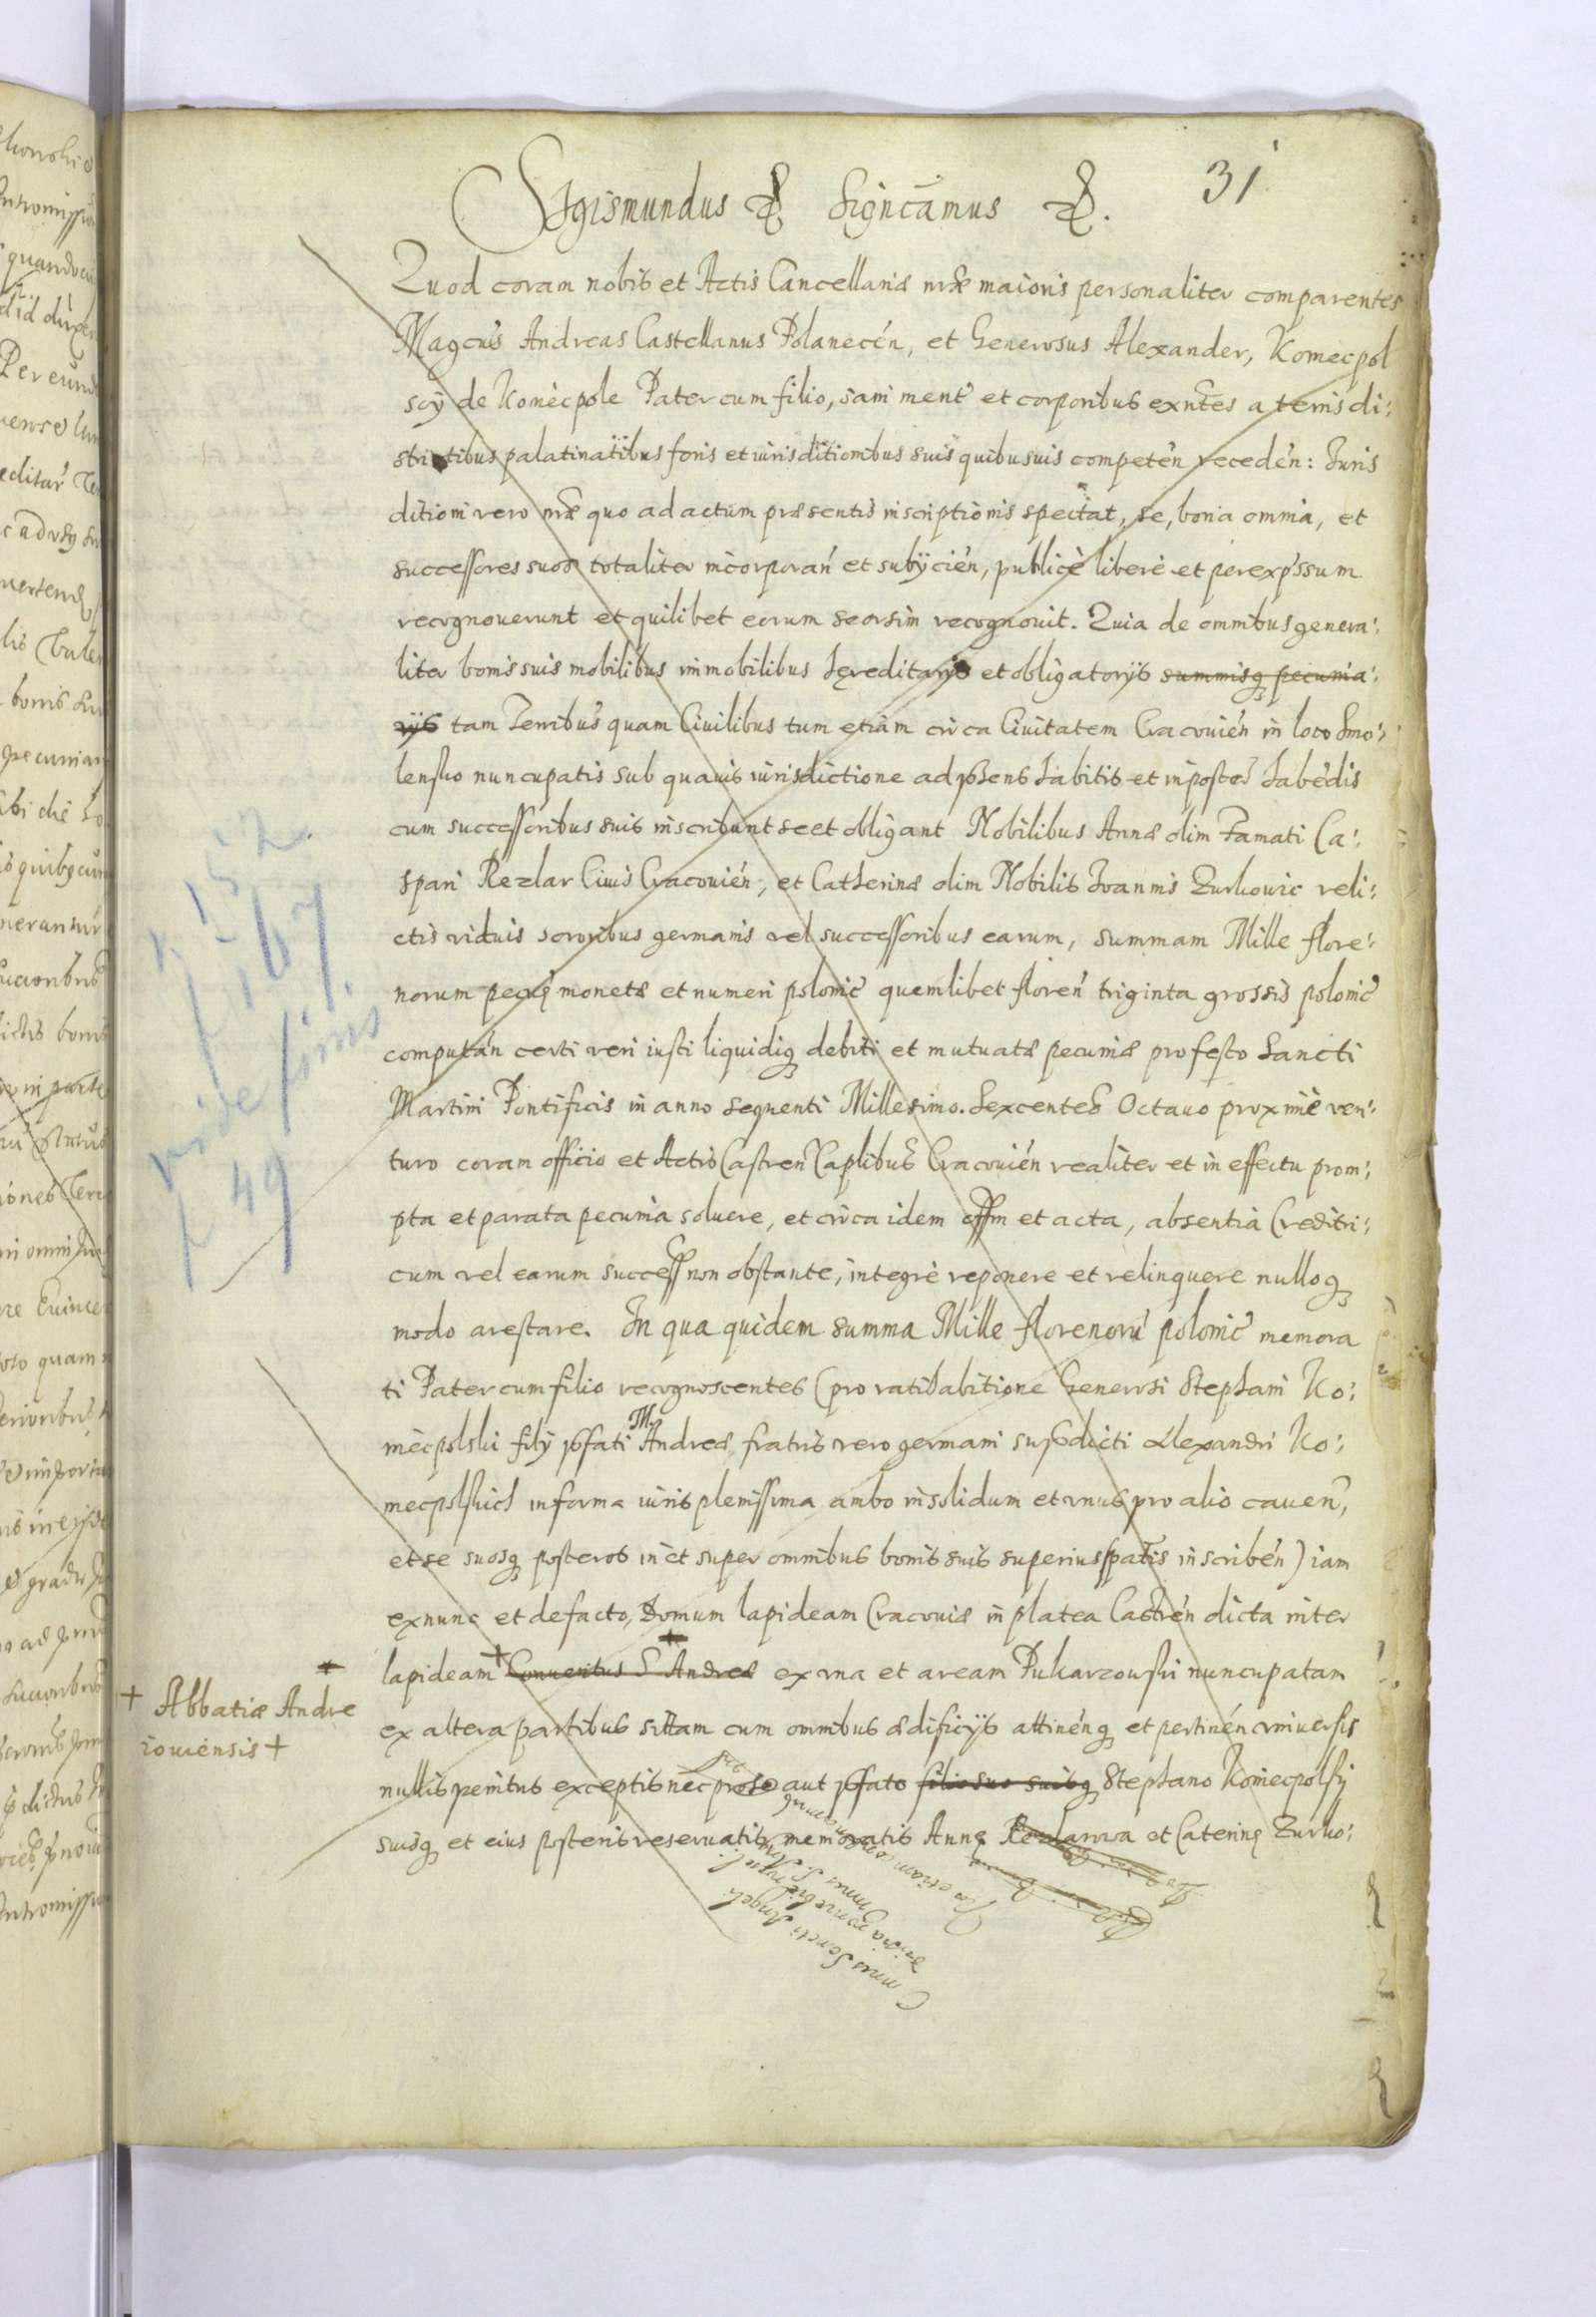 31
Sigismundus &c. Significamus &c.
Quod coram nobis et Actis Cancellariæ nræ maioris personaliter comparentes
Magcus Andreas Castellanus Polanecen, et Generosus Alexander, Koniecpol
scy de Koniecpole Pater cum filio, sani mente et corporibus exntes a terris di:
strictibus palatinatibus foris et iurisditionibus suis quibusuis competen receden: Juris
ditioni vero nræ quo ad actum præsentis inscriptionis spectat, se, bona omnia, et
successores suos totaliter incorporan et subijcien, publice libere et per expssum
recognouerunt et quilibet eorum seorsim recognouit. Quia de omnibus genera:
liter bonis suis mobilibus immobilibus hęreditarijs et obligatorijs summisq pecunia:
rijs tam Terribus quam Ciuilibus tum etiam circa Ciuitatem Cracouien in loco Smo:
lensko nuncupatis sub quauis iurisdictione ad psens habitis et inposter habedis
cum successoribus suis inscribunt se et obligant Nobilibus Annæ olim Famati Ca:
spari Rezlar Ciuis Cracouien, et Catherinæ olim Nobilis Joannis Zurkowic reli:
ctis viduis sororibus germanis vel successoribus earum, summam Mille flore:
norum pecuę monetæ et numeri polonic quemlibet floren triginta grossis polonic
computan certi veri iusti liquidiq debiti et mutuatæ pecuniæ pro festo Sancti
Martini Pontificis in anno sequenti Millesimo. Sexcentes Octauo proxime ven:
turo coram officio et Actis Castren Caplibus Cracouien realiter et in effectu prom:
pta et parata pecunia soluere, et circa idem offm et acta, absentia Creditri:
cum vel earum success non obstante, integre reponere et relinquere nulloq
modo arestare. In qua quidem summa Mille florenoru polonic memora
ti Pater cum filio recognoscentes (pro ratihabitione Generosi Stephani Ko:
niecpolski filij pfati M. Andreæ, fratris vero germani supdicti Alexandri Ko:
niecpolskich in forma iuris plenissima ambo insolidum et vnus pro alio cauen,
et se suosq posteros in et super omnibus bonis suis superius spatis inscriben) iam
exnunc et defacto, Domum lapideam Cracouiæ in platea Castren dicta inter
lapideam + Conuentus S Andreæ ex vna et aream Pukarzowski nuncupatam
+ Abbatiæ Andre
iouiensis +
ex altera partibus sitam cum omnibus ædificijs attinenq et pertinen vniuersis
nullis penitus exceptis nec pro se aut pfato filio suo suisq Stephano Koniecpolsky
suisq et eius posteris reseruatis, memoratis Annę Rezlarowa et Caterinę Zurko:
f. 152.
f. 167.
vide prius
f 49